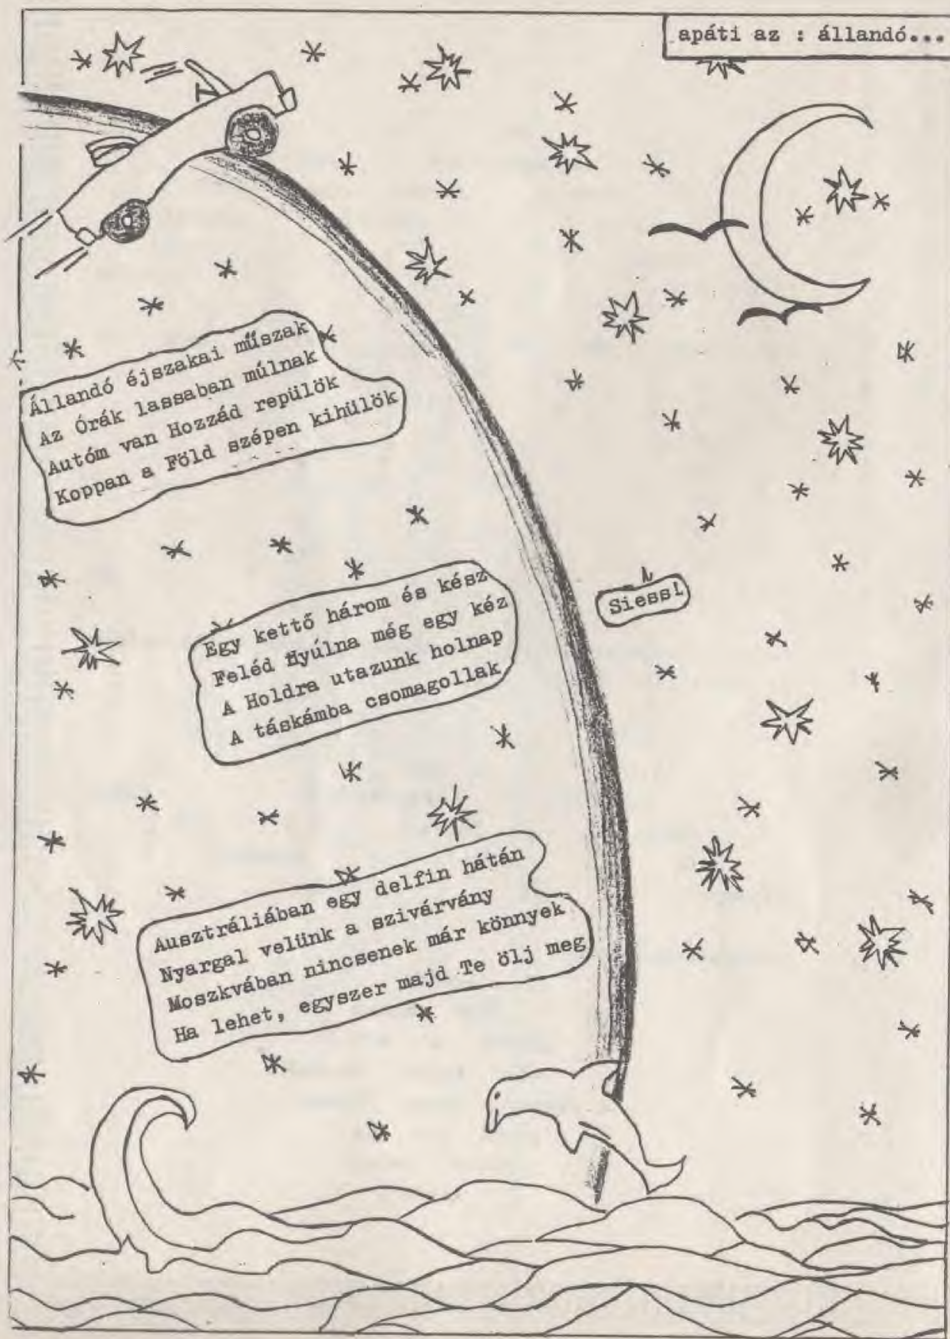 apáti az : állandó...
Állandó éjszakai műszak
Az Órák lassaban múlnak
Autóm van Hozzád repülök
Koppan a Föld szépen kihülök
Egy kettő három és kész
Feléd Nyúlna még egy kéz
A Holdra utazunk holnap
A táskámba csomagollak
Siess!
Ausztráliában egy delfin hátán
Nyargal velünk a szivárvány
Moszkvában nincsenek már könnyek
Ha lehet, egyszer majd Te ölj meg